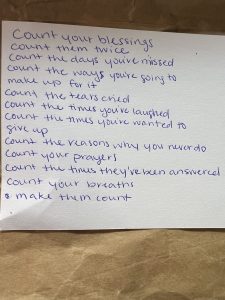 Count your blessings
count them twice
Count the days you've missed
count the ways you're going to
make up for it
Count the tears cried
count the times you've laughed
Count the times you've wanted to
give up
Count the reasons why you never do
Count your prayers
Count the times they've been answered
Count your breaths
& make them count
.